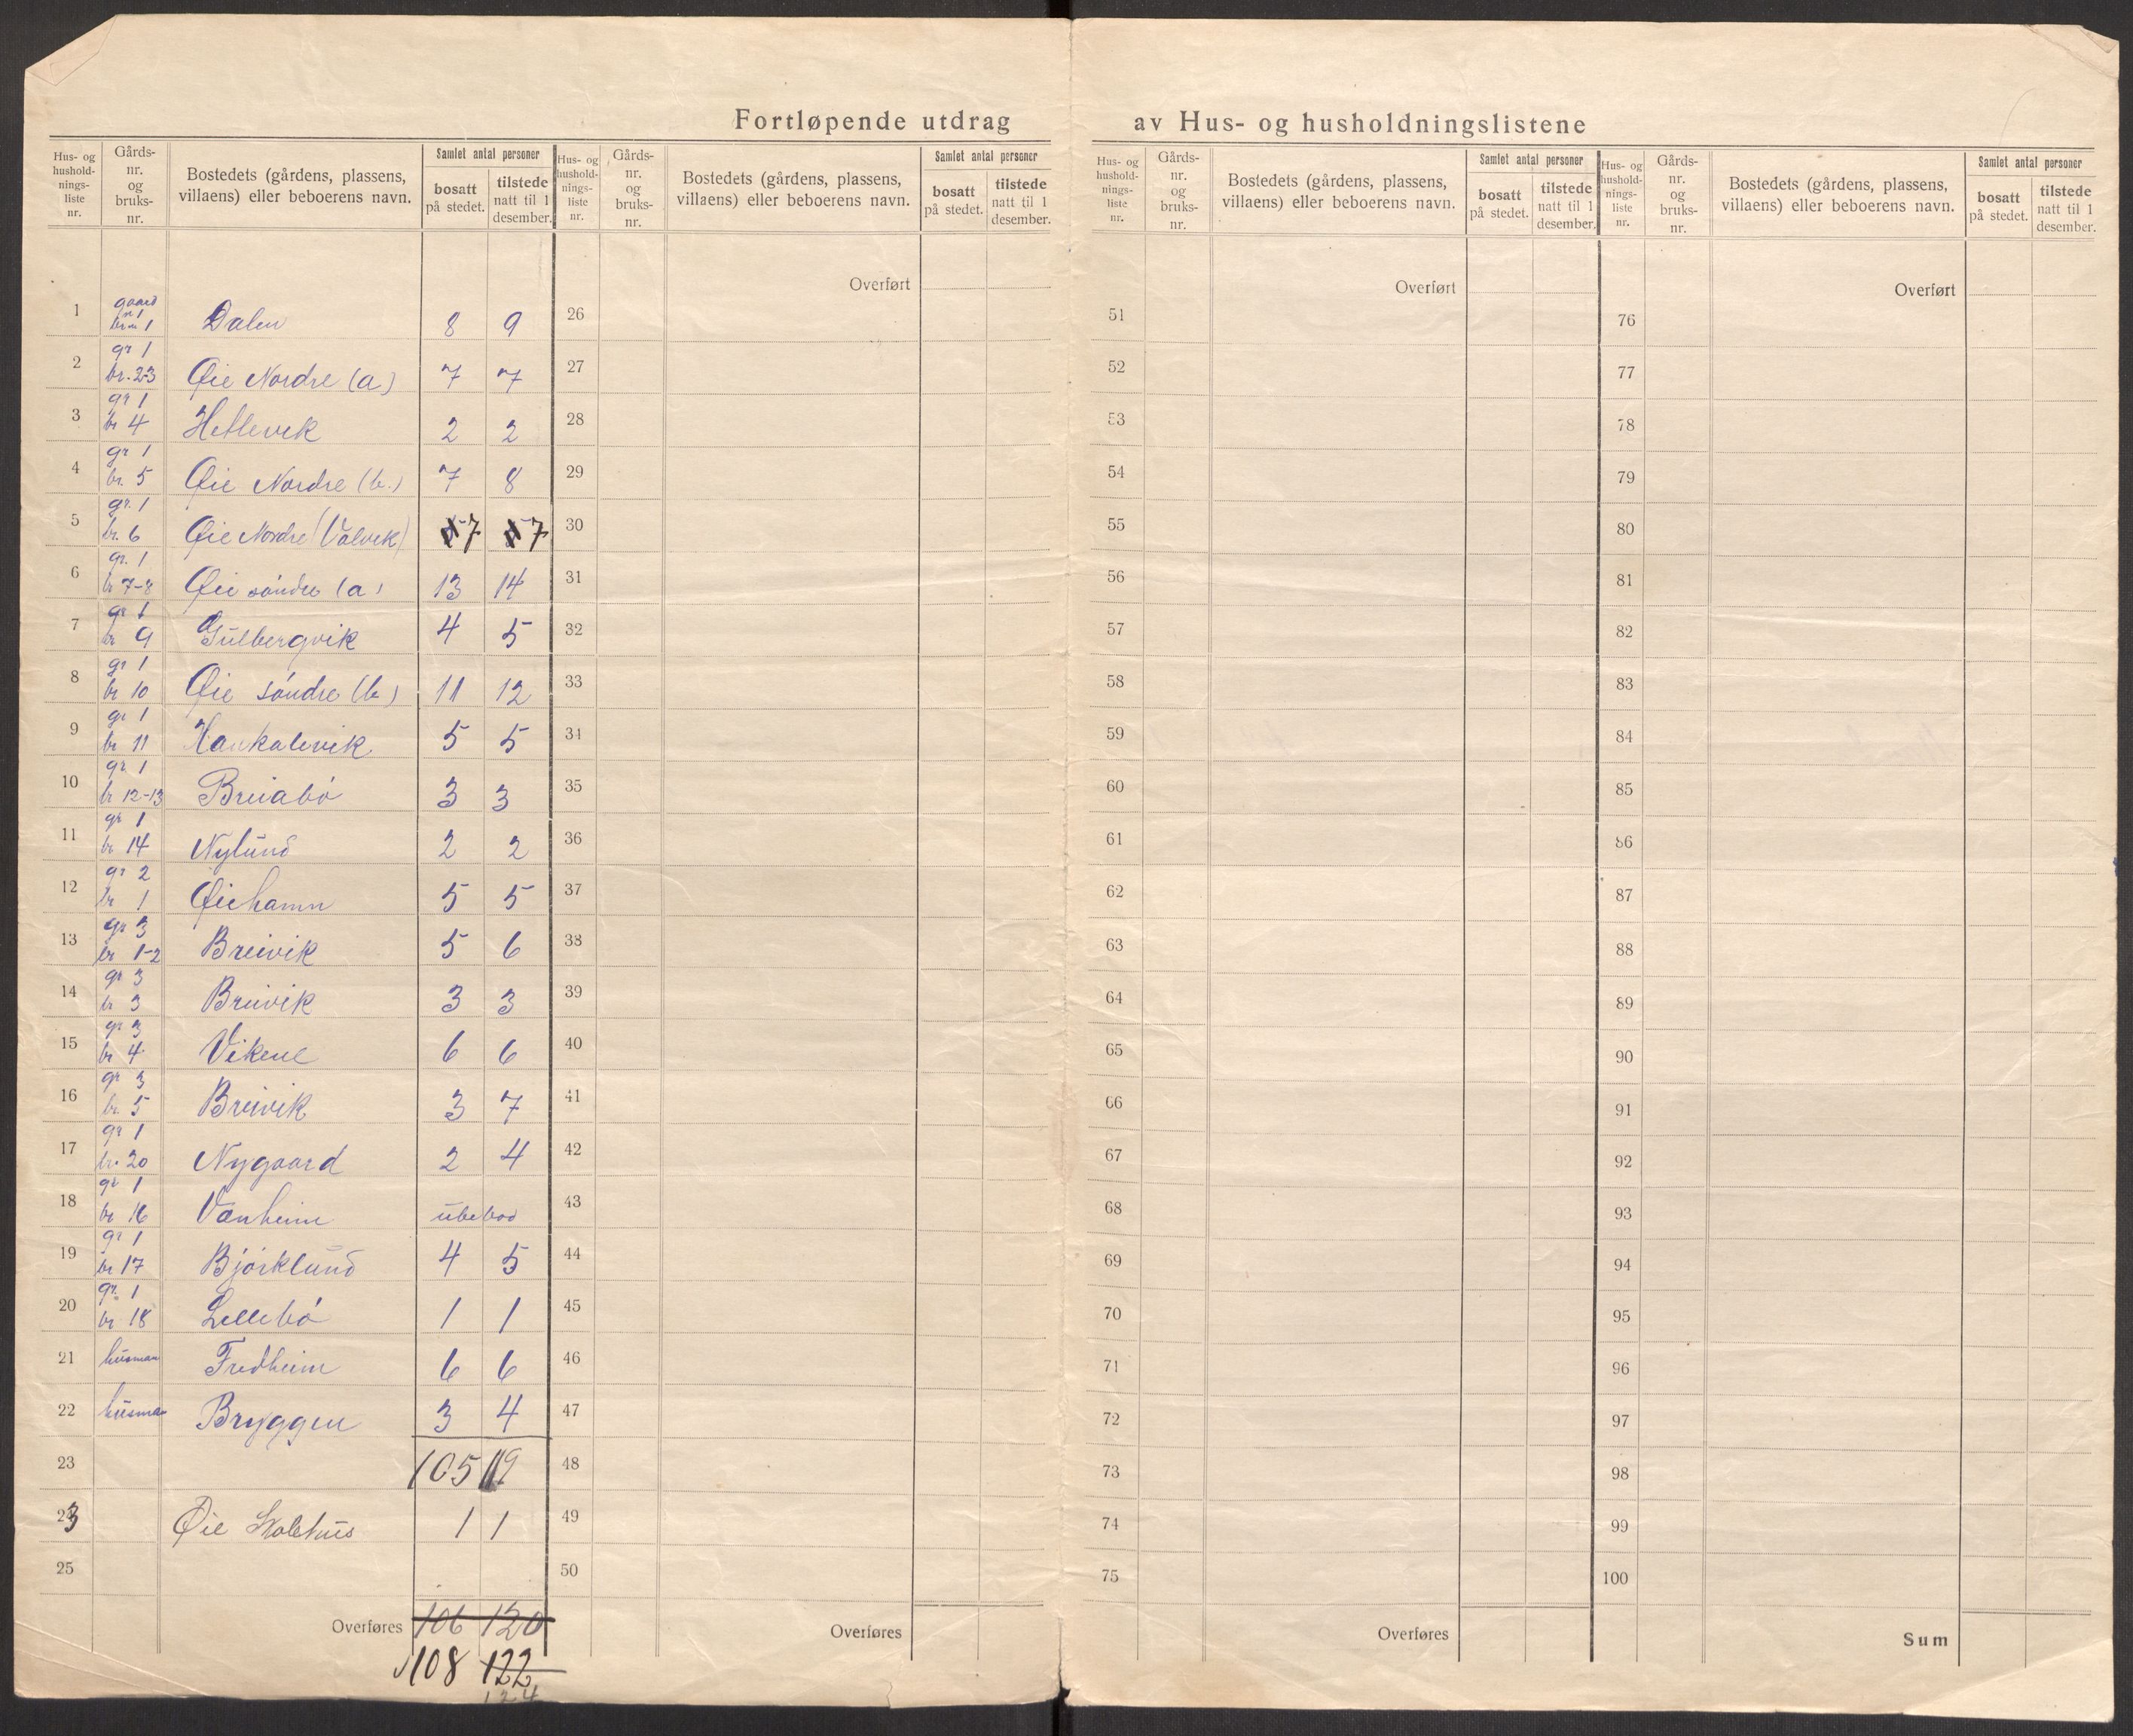 Fortløpende utdrag av Hus- og husholdningslistene
Hus- og hushold- nings- liste nr. | Gårds- nr. og bruks- nr. | Bostedets (gårdens, plassens, villaens) eller beboerens navn. | Samlet antal personer | bosatt på stedet. | tilstede natt til 1 desember.
Hus- og hushold- nings- liste nr. | Gårds- nr. og bruks- nr. | Bostedets (gårdens, plassens, villaens) eller beboerens navn. | Samlet antal personer | bosatt på stedet. | tilstede natt til 1 desember.
Hus- og hushold- nings- liste nr. | Gårds- nr. og bruks- nr. | Bostedets (gårdens, plassens, villaens) eller beboerens navn. | Samlet antal personer | bosatt på stedet. | tilstede natt til 1 desember.
Hus- og hushold- nings- liste nr. | Gårds- nr. og bruks- nr. | Bostedets (gårdens, plassens, villaens) eller beboerens navn. | Samlet antal personer | bosatt på stedet. | tilstede natt til 1 desember.
Overført Overført Overført
1 Dalen 8 9
2 gr 1 br. 2-3 Øie Nordre (a) 7 7
3 gr 1 br 4 Hetlevik 2 2
4 gr 1 br. 5 Øie Nordre (b.) 7 8
5 gr. 1 br. 6 Øie Nordre (Valvik) 7 7
6 gr. 1 br 7-8 Øie søndre (a) 13 14
7 gr 1 br 9 Gulbergvik 4 5
8 gr 1 br 10 Øie søndre (b) 11 12
9 gr 1 br 11 Haukalivik 5 5
10 gr. 1 br 12-13 Breiabø 3 3
11 gr 1 br 14 Nylund 2 2
12 gr 2 br 1 Øiehamn 5 5
13 gr 3 br 1-2 Breivik 5 6
14 gr 3 br 3 Breivik 3 3
15 gr 3 br 4 Vikene 6 6
16 gr 3 br. 5 Breivik 3 7
17 gr 1 br. 20 Nygaard 2 4
18 gr 1 br 16 Vonheim ubebod
19 gr 1 br 17 Bjørklund 4 5
20 gr. 1 br 18 Lillebø 1 1
21 husman Fredheim 6 6
22 husman Bryggen 3 4
23 105 119
23 Øie Skolehus 1 1
25
Overføres 106 120
108 122
124
26
27
28
29
30
31
32
33
34
35
36
37
38
39
40
41
42
43
44
45
46
47
48
49
50
Overføres
51
52
53
54
55
56
57
58
59
60
61
62
63
64
65
66
67
68
69
70
71
72
73
74
75
Overføres
76
77
78
79
80
81
82
83
84
85
86
87
88
89
90
91
92
93
94
95
96
97
98
99
100
Sum